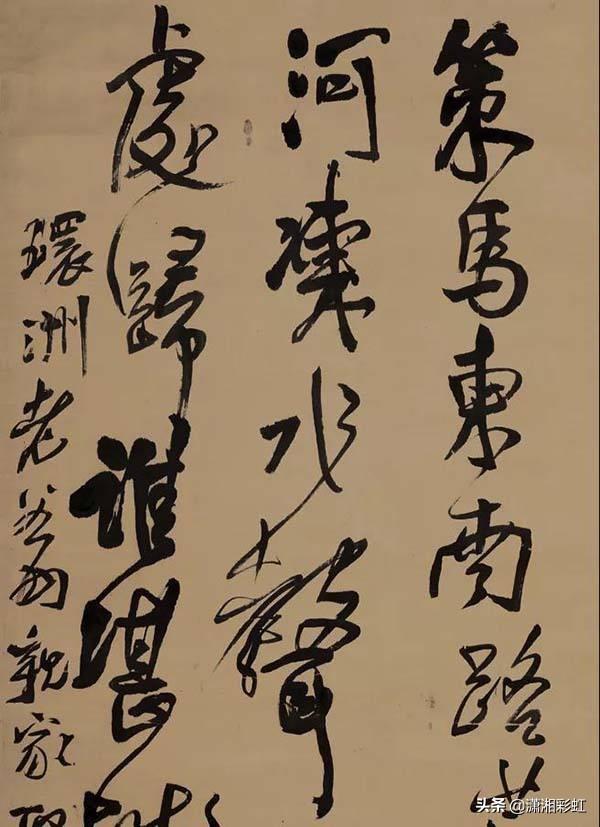 策馬東南路
河水聲
處歸誰湛
環洲老翁親家
头条 @潇湘彩虹